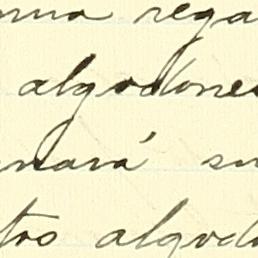 una rega
algodones
nará su
tos algodo